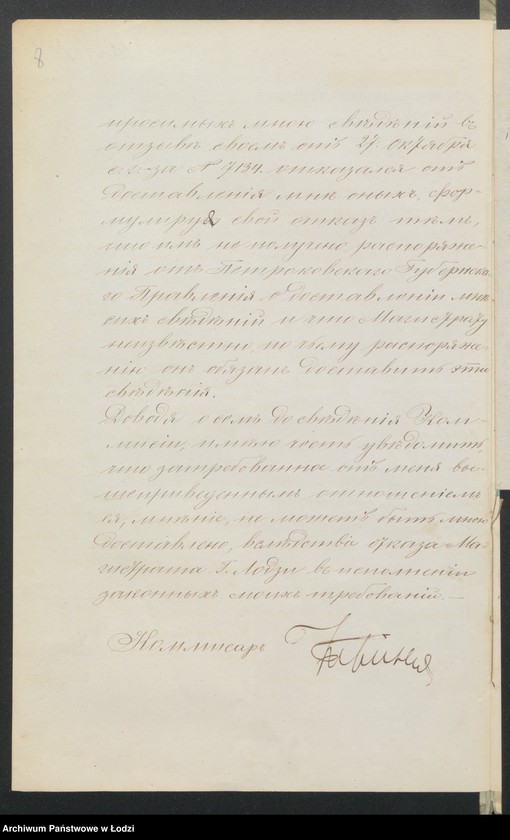 8
просимыхъ мною свѣдѣній въ
отзывѣ своемъ отъ 27 Октября
с. г. за № 7134 отказался отъ
доставленія мнѣ оныхъ, фор-
мулируя свой отказъ тѣмъ,
что имъ не получено распоряже-
нія отъ Петроковскаго Губернска-
го Правленія о доставленіи мнѣ
сихъ свѣдѣній и что Магистрату
неизвѣстно, по чьему распоряже-
нію онъ обязанъ доставить эти
свѣдѣнія.
Доводя о семъ до свѣдѣнія Ком-
мисіи, имѣю честь увѣдомить,
что затребованное отъ меня вы-
шеприведеннымъ отношеніемъ
ея, мнѣніе, не можетъ быть мною
доставлено, вслѣдствіе отказа Ма-
гистрата Г. Лодзи въ исполненіи
законныхъ моихъ требованій. —
Коммисаръ
Archiwum Państwowe w Łodzi